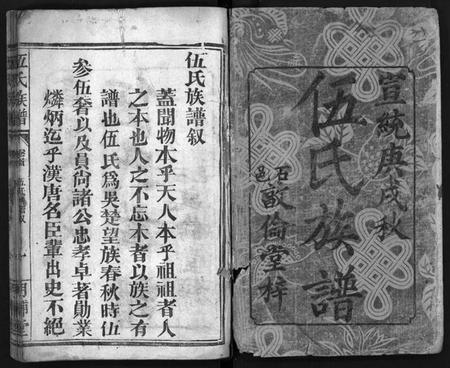 宣統庚戌秋
伍氏族譜
石邑敦倫堂梓
伍氏族譜叙
蓋聞物本乎天人本乎祖祖者人
之本也人之不忘本者以族之有
譜也伍氏爲吳楚望族春秋時伍
參伍奢以及員尚諸公忠孝卓著勛業
燐炳迄乎漢唐名臣輩出史不絕
伍氏族譜